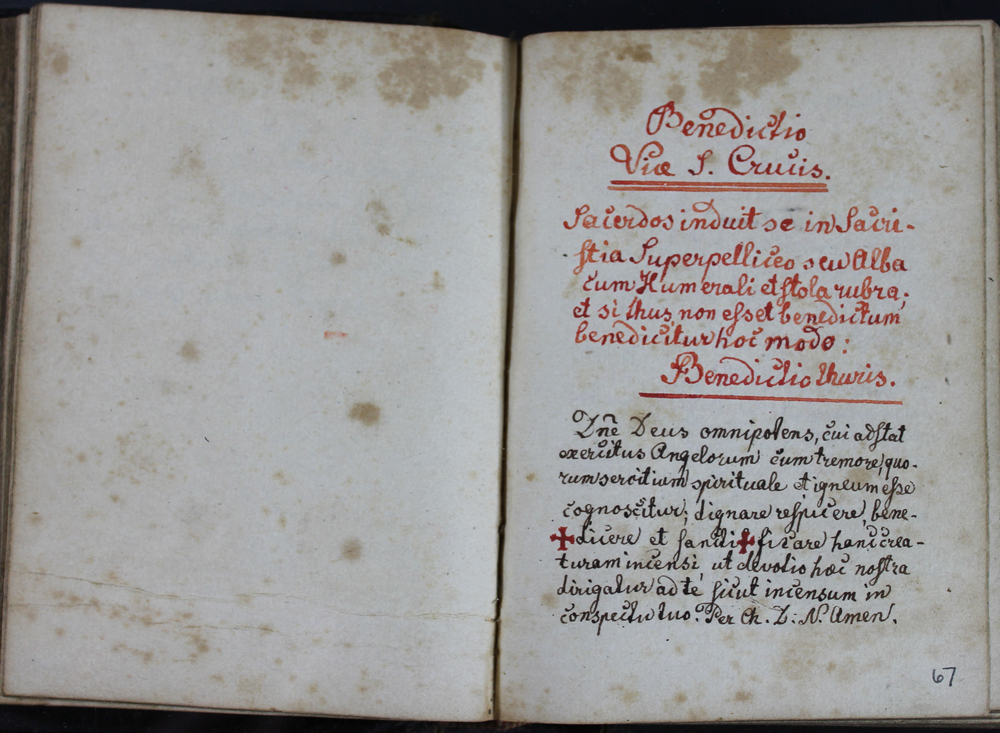 Benedictio
Viæ S. Crucis.
Sacerdos induit se in Sacri-
stia Superpelliceo seu Alba
cum Humerali et stola rubra;
et si thus non esset benedictum
benedicitur hoc modo:
Benedictio thuris.
Dñe Deus omnipotens, cui adstat
exercitus Angelorum cum tremore, quo-
rum servitium spirituale et igneum esse
cognoscitur; dignare respicere, bene-
✠dicere et sancti✠ficare hanc crea-
turam incensi, ut devotio hæc nostra
dirigatur ad te sicut incensum in
conspectu tuo. Per Ch. D. N. Amen.
67